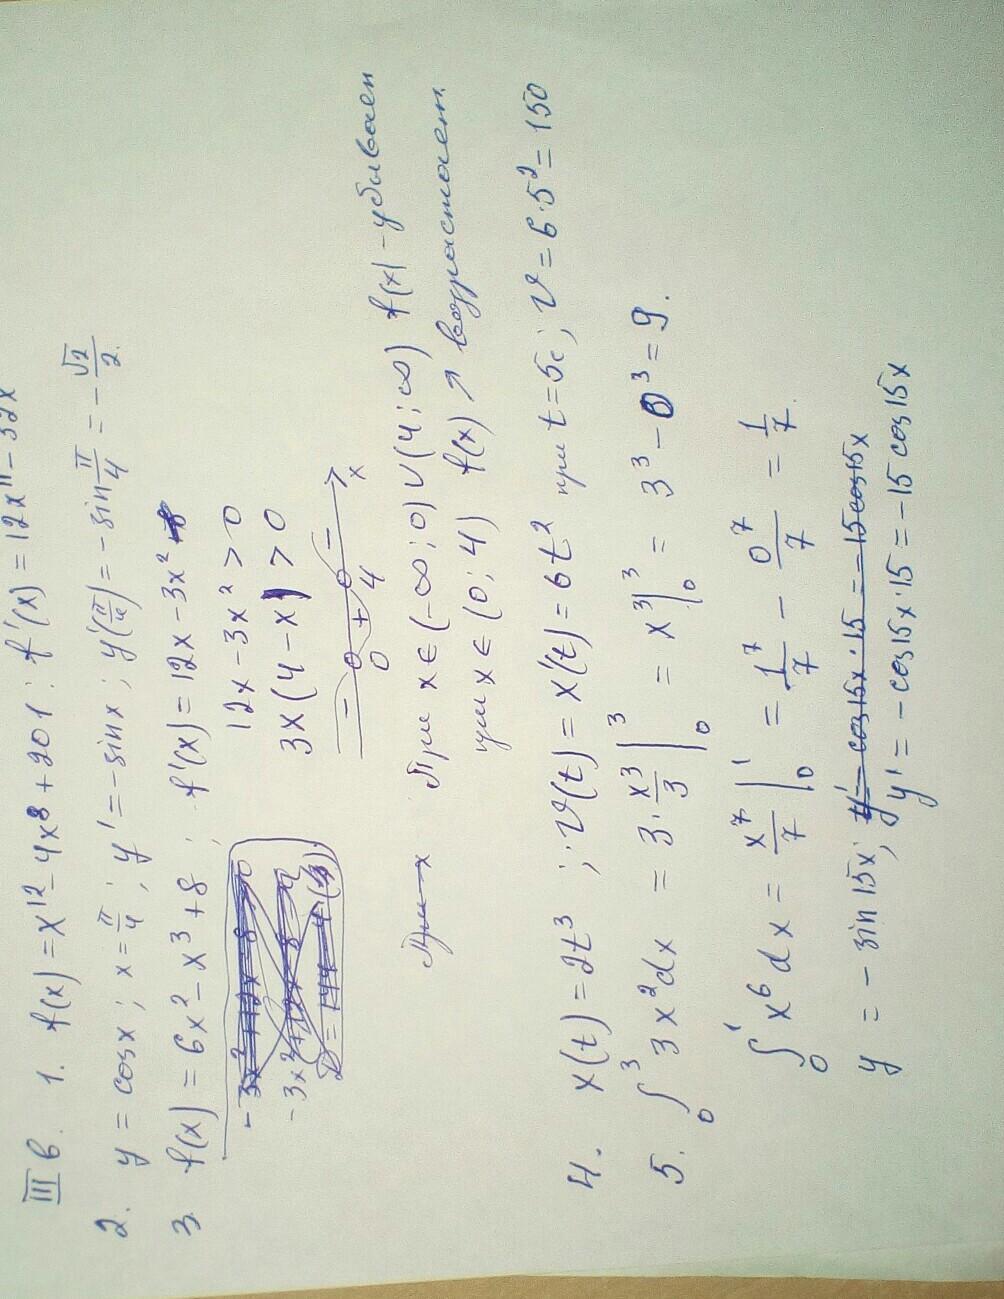 III в. 1. f(x) = x¹² - 4x⁸ + 201 : f'(x) = 12x¹¹ - 32x
2. y = cosx ; x = π/4 ; y' = -sinx ; y'(π/4) = -sin π/4 = -√2/2.
3. f(x) = 6x² - x³ + 8 ; f'(x) = 12x - 3x²
12x - 3x² > 0
3x(4 - x) > 0
- + -
0 4 x
При x ∈ (-∞; 0) ∪ (4; ∞) f(x) - убывает
при x ∈ (0; 4) f(x) ↗ возрастает.
4. x(t) = 2t³ ; v(t) = x'(t) = 6t² при t = 5c ; v = 6·5² = 150
5. ∫₀³ 3x²dx = 3·x³/3 |₀³ = x³|₀³ = 3³ - 0³ = 9.
∫₀¹ x⁶dx = x⁷/7 |₀¹ = 1⁷/7 - 0⁷/7 = 1/7.
y = -sin 15x; y' = -cos15x·15 = -15cos15x
y' = -cos15x·15 = -15cos15x